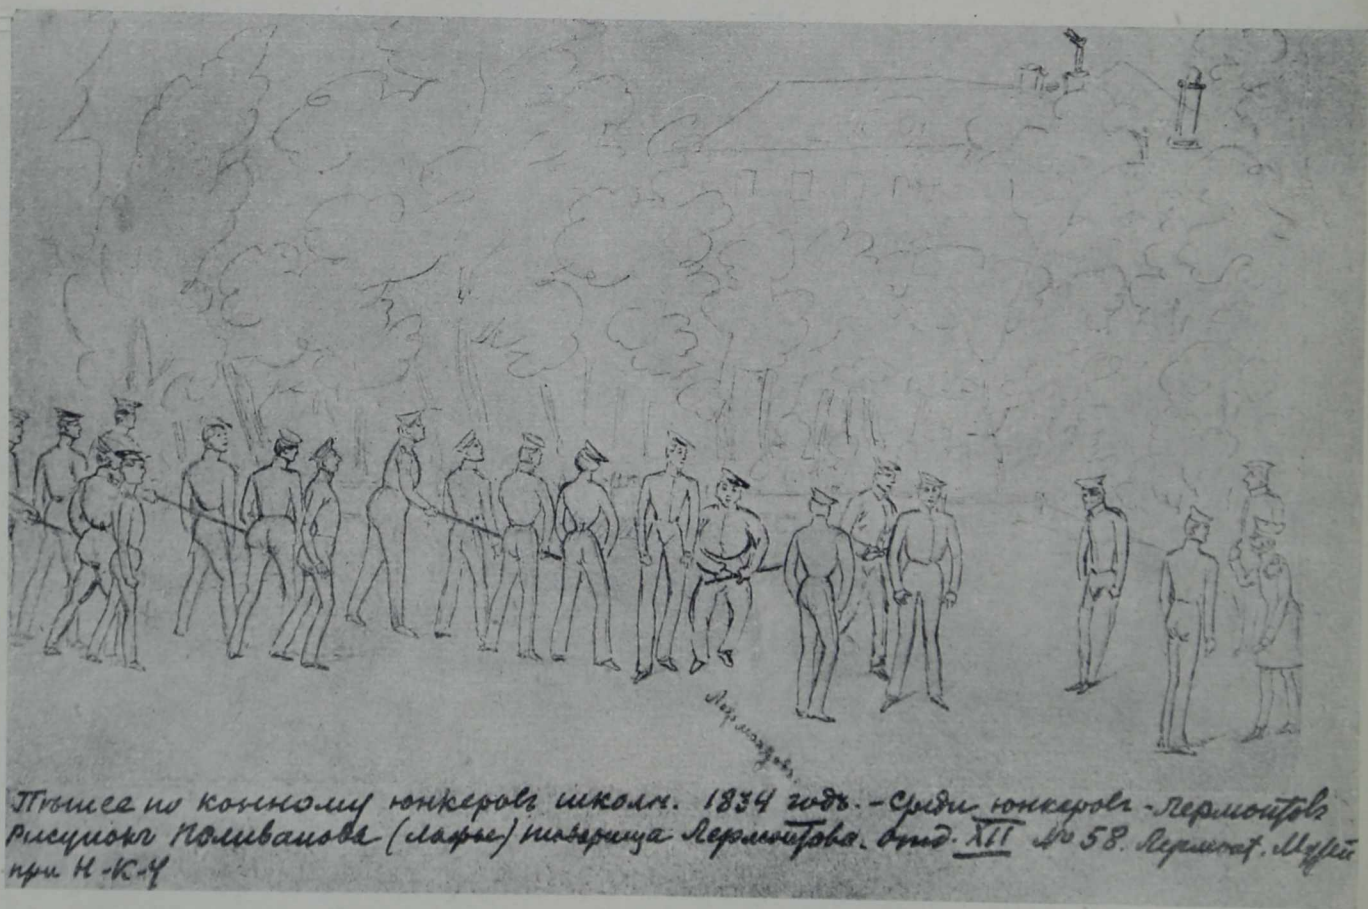 Лермантовъ.
по конному юнкеровъ школы. 1834 годъ. - Среди юнкеровъ - Лермонтовъ
Рисунокъ Поливанова (Лафы) товарища Лермонтова. отд. XII № 58. Лермонт. Музей
при Н-К-У